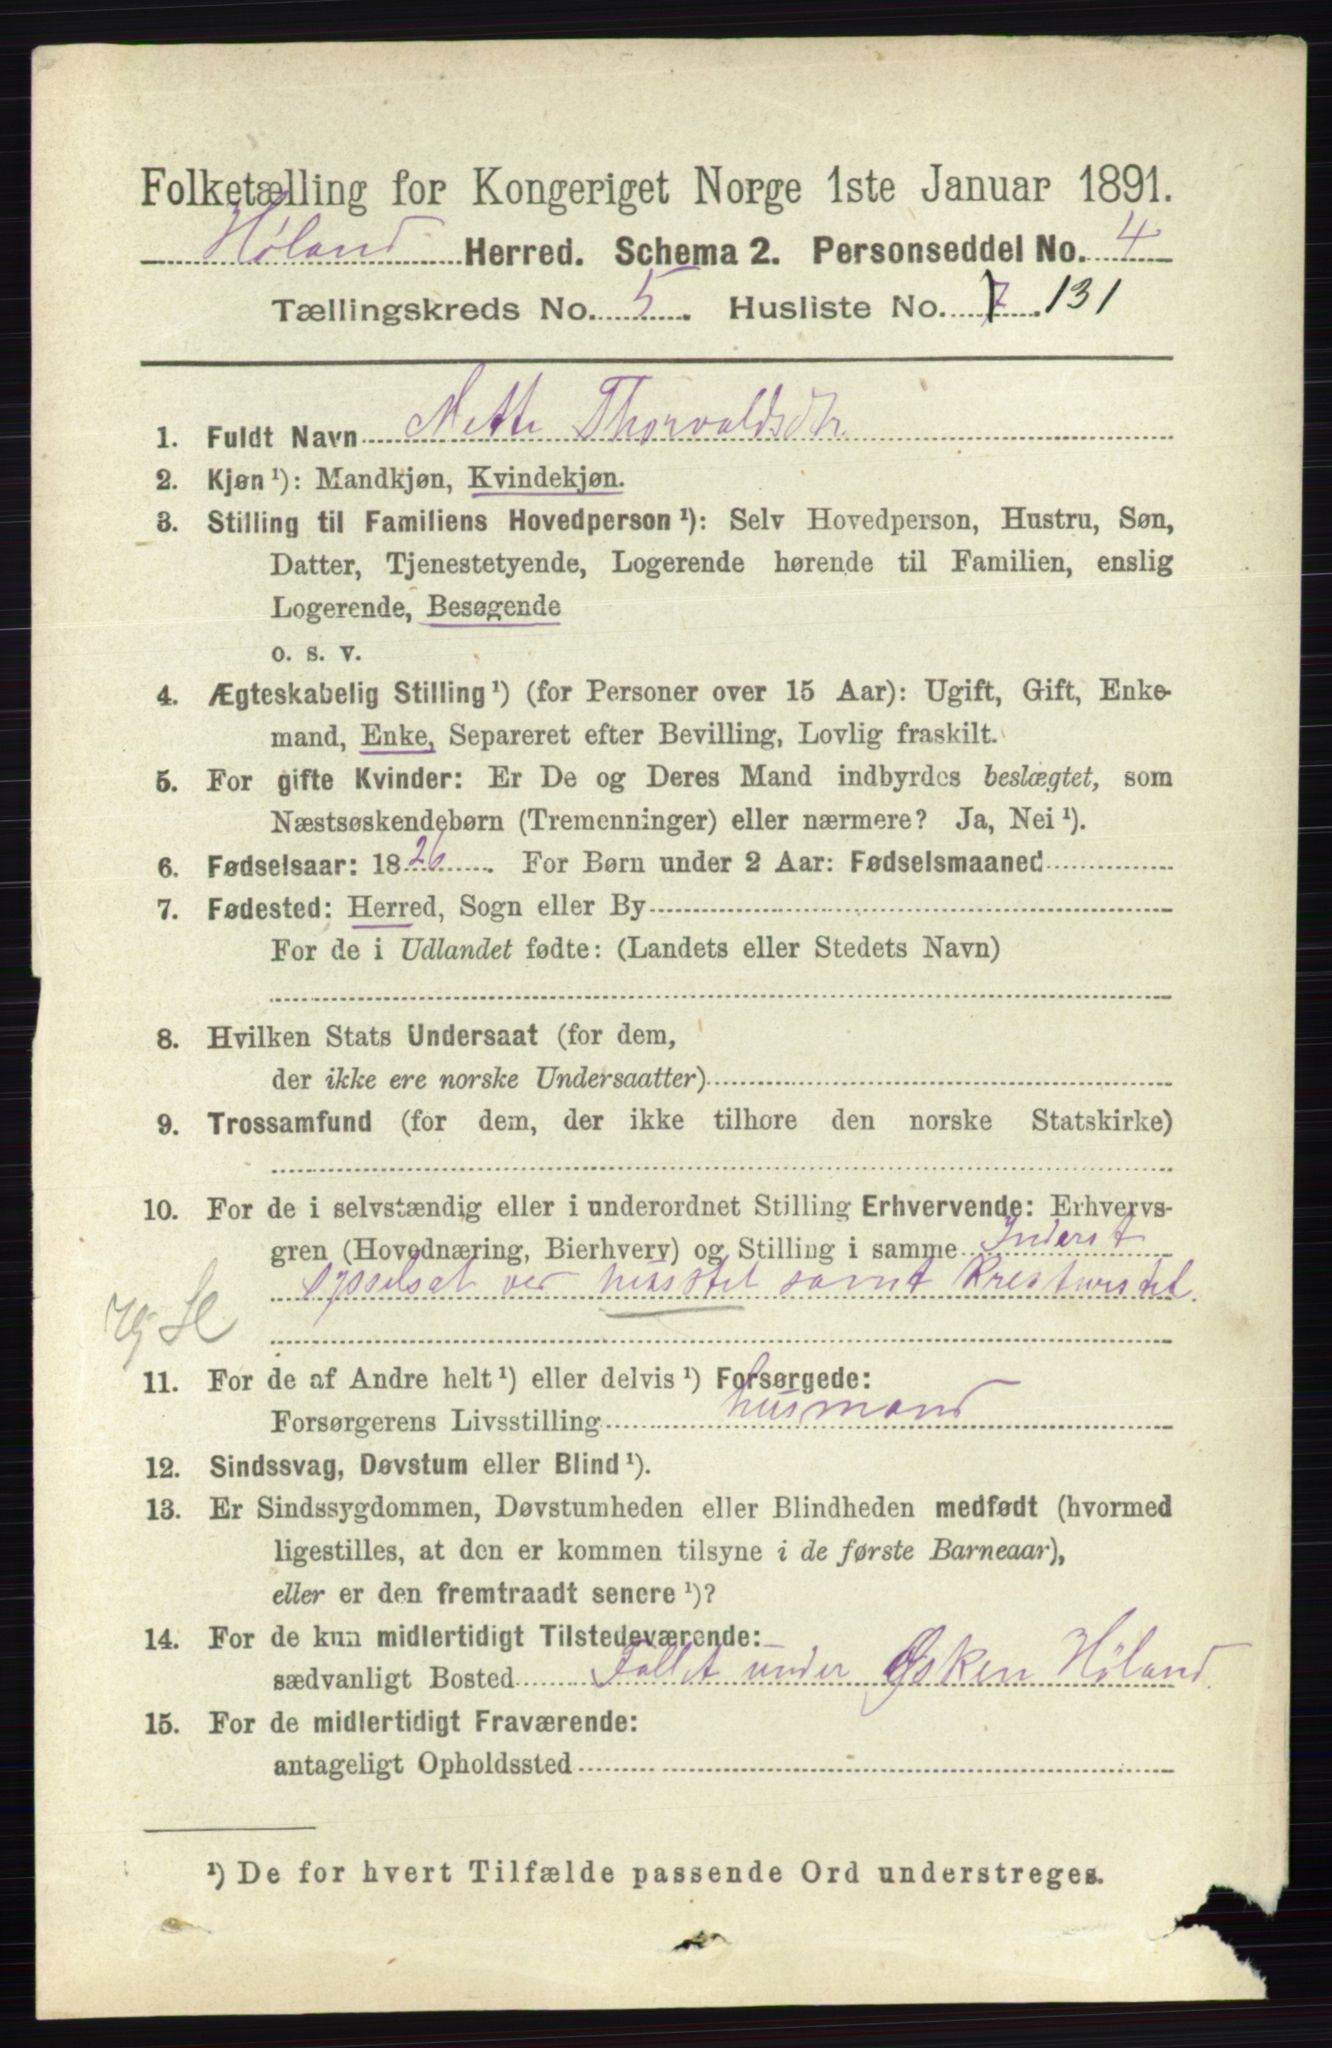 Folketælling for Kongeriget Norge 1ste Januar 1891.
Høland Herred. Schema 2. Personseddel No. 4
Tællingskreds No. 5. Husliste No. 7 131
1. Fuldt Navn Mette Thorvaldsdtr
2. Kjøn ¹): Mandkjøn, Kvindekjøn.
3. Stilling til Familiens Hovedperson ¹): Selv Hovedperson, Hustru, Søn,
Datter, Tjenestetyende, Logerende hørende til Familien, enslig
Logerende, Besøgende
o. s. v.
4. Ægteskabelig Stilling ¹) (for Personer over 15 Aar): Ugift, Gift, Enke-
mand, Enke, Separeret efter Bevilling, Lovlig fraskilt.
5. For gifte Kvinder: Er De og Deres Mand indbyrdes beslægtet, som
Næstsøskendebørn (Tremenninger) eller nærmere? Ja, Nei ¹).
6. Fødselsaar: 1826. For Børn under 2 Aar: Fødselsmaaned
7. Fødested: Herred, Sogn eller By
For de i Udlandet fødte: (Landets eller Stedets Navn)
8. Hvilken Stats Undersaat (for dem,
der ikke ere norske Undersaatter)
9. Trossamfund (for dem, der ikke tilhøre den norske Statskirke)
10. For de i selvstændig eller i underordnet Stilling Erhvervende: Erhvervs-
gren (Hovednæring, Bierhverv) og Stilling i samme Inderst
sysselsat ved husstel samt Kresturstel.
11. For de af Andre helt ¹) eller delvis ¹) Forsørgede:
Forsørgerens Livsstilling husmand
12. Sindssvag, Døvstum eller Blind ¹).
13. Er Sindssygdommen, Døvstumheden eller Blindheden medfødt (hvormed
ligestilles, at den er kommen tilsyne i de første Barneaar),
eller er den fremtraadt senere ¹)?
14. For de kun midlertidigt Tilstedeværende:
sædvanligt Bosted Fallet under Øsken Høland.
15. For de midlertidigt Fraværende:
antageligt Opholdssted
¹) De for hvert Tilfælde passende Ord understreges.